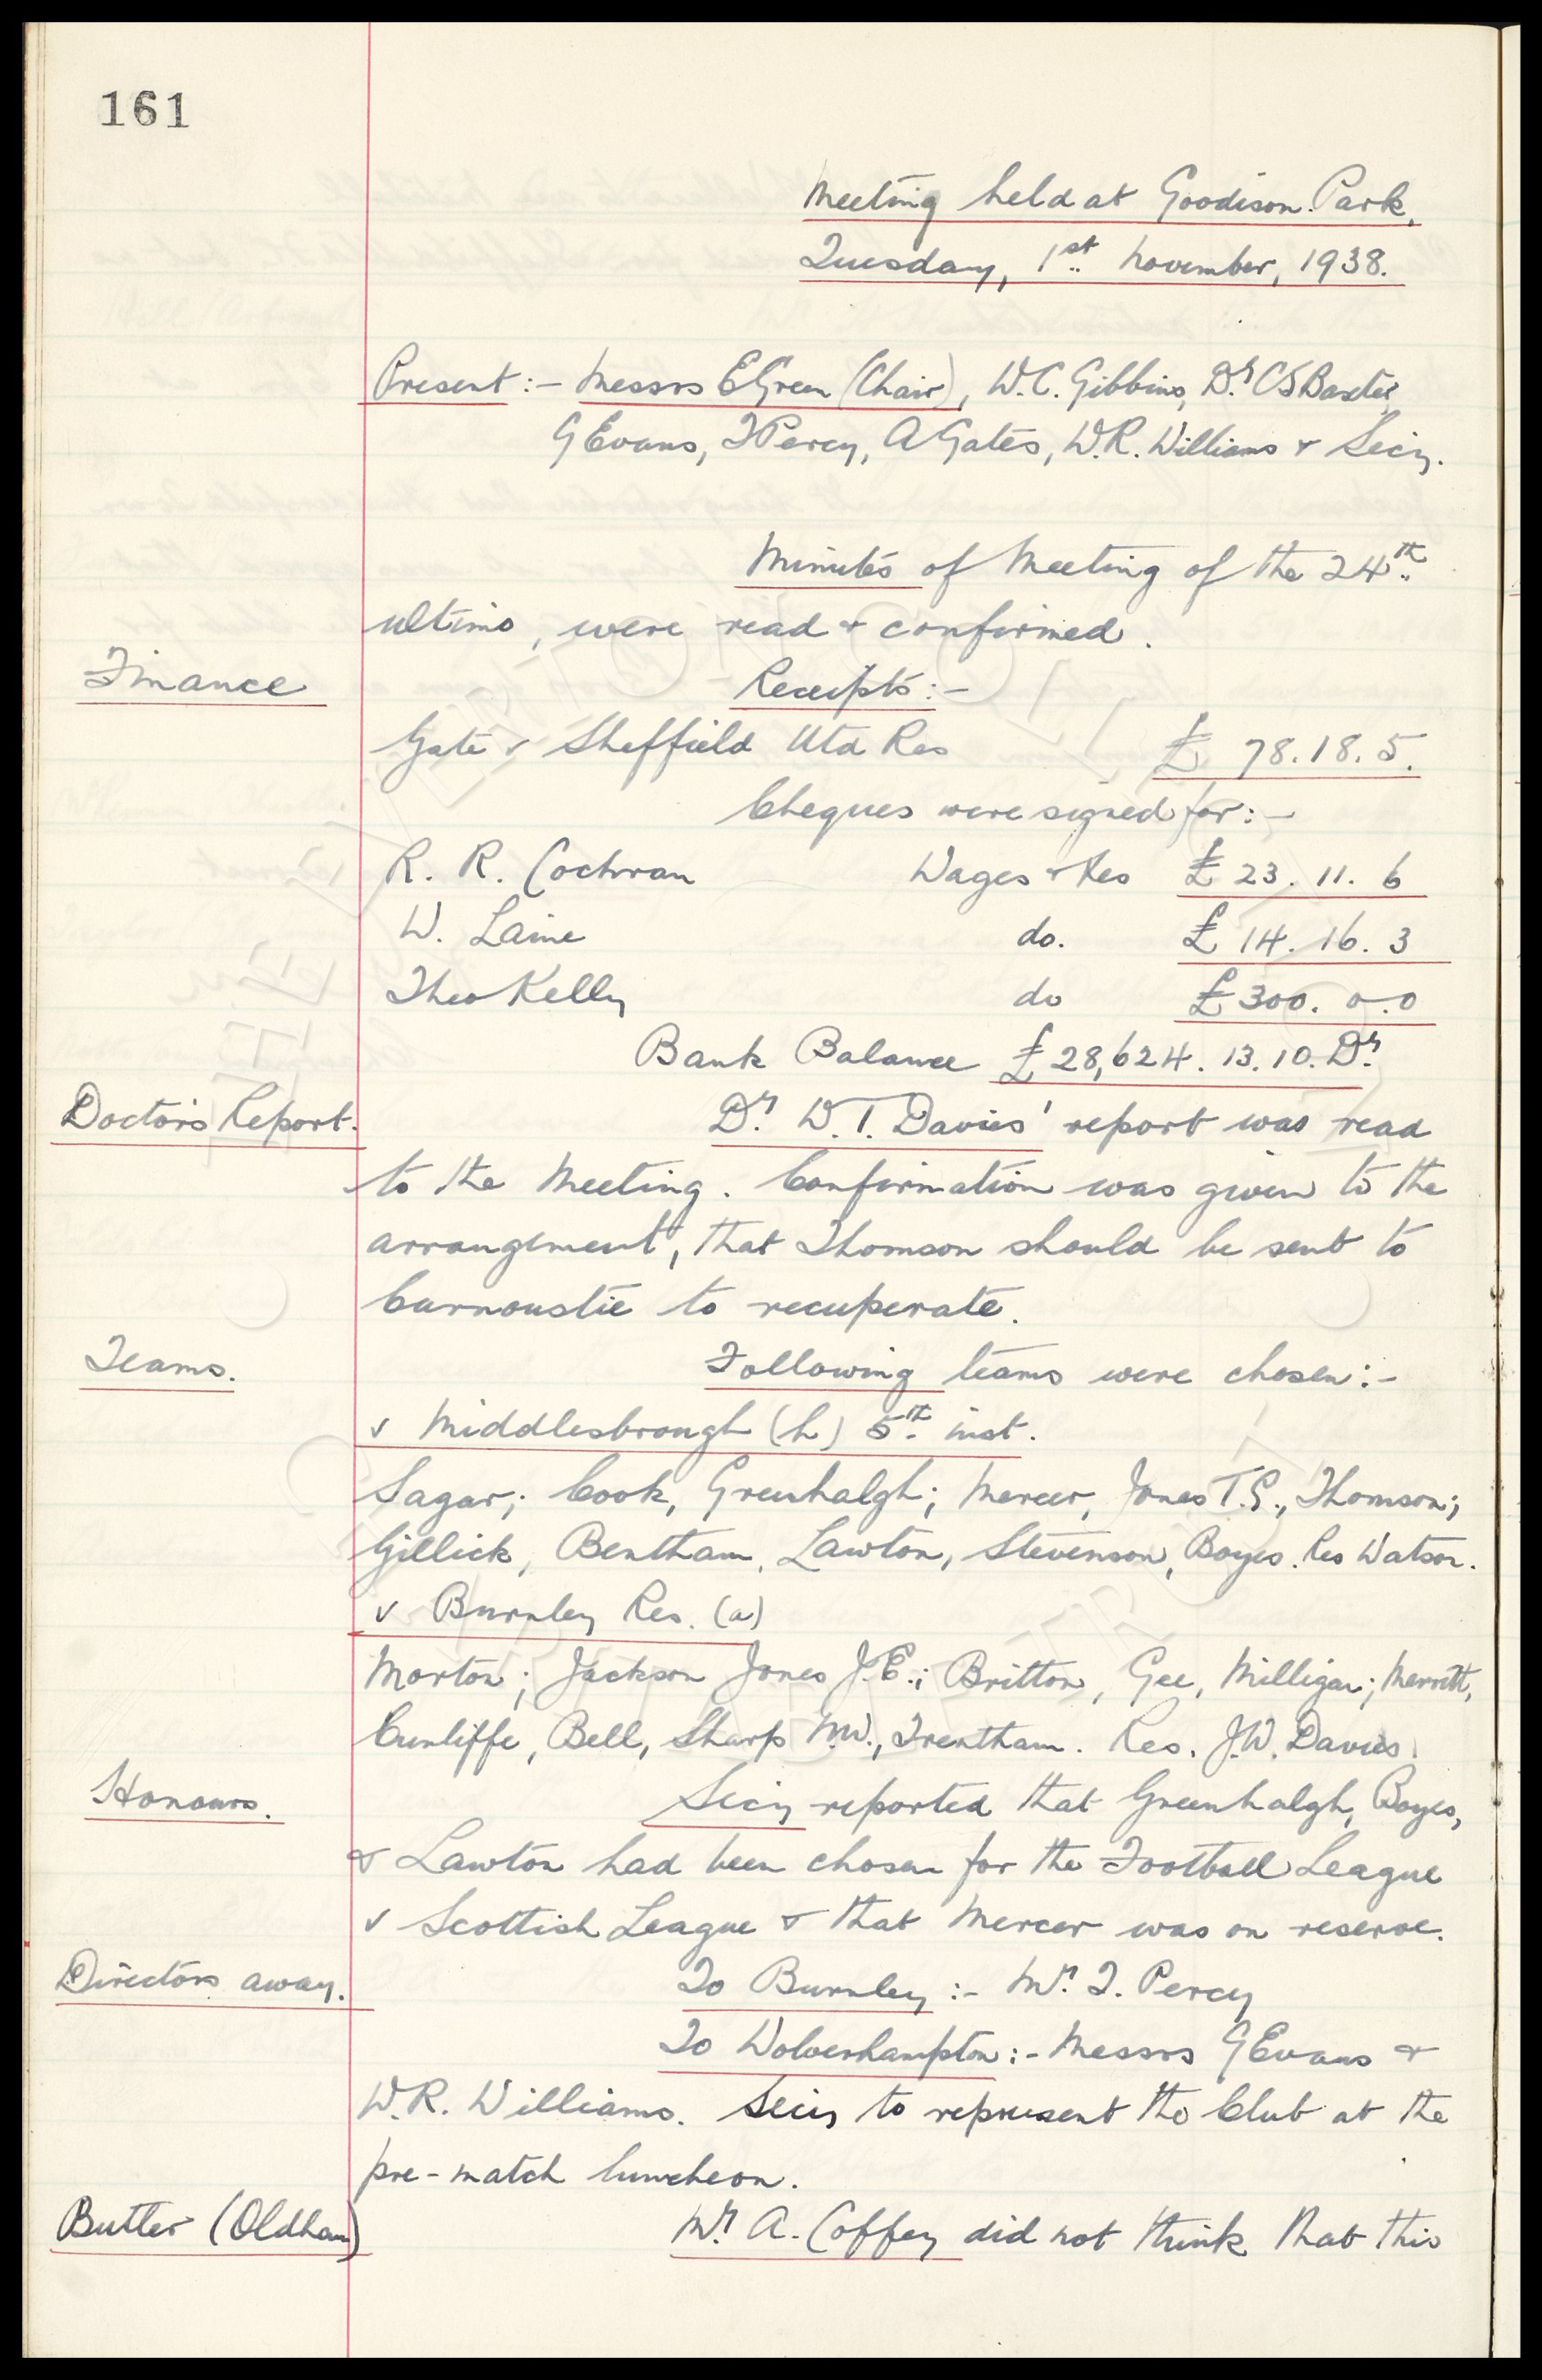 161
Meeting held at Goodison Park,
Tuesday, 1st November, 1938.
Present :- Messrs E Green (Chair), W.C. Gibbins, Dr. C S Baxter,
G Evans, T Percy, A Gates, W.R. Williams & Secy.
Minutes of Meeting of the 24th
ultimo, were read & confirmed.
Finance
Receipts :-
Gate v Sheffield Utd Res £ 78.18.5.
Cheques were signed for :-
R. R. Cochran Wages & Res £ 23. 11. 6
W. Laine do. £ 14. 16. 3
Theo Kelly do £ 300. 0.0
Bank Balance £ 28,624. 13. 10. Dr.
Doctor's Report. Dr. W.T. Davies' report was read
to the Meeting. Confirmation was given to the
arrangement, that Thomson should be sent to
Carnoustie to recuperate.
Teams. Following teams were chosen :-
v Middlesbrough (h) 5th inst.
Sagar; Cook, Greenhalgh; Mercer, Jones T.G., Thomson;
Gillick, Bentham, Lawton, Stevenson, Boyes. Res Watson.
v Burnley Res. (a)
Morton; Jackson Jones J.E.; Britton, Gee, Milligan; Merritt,
Cunliffe, Bell, Sharp N.W., Trentham. Res. J.W. Davies.
Honours. Secy reported that Greenhalgh, Boyes,
& Lawton had been chosen for the Football League
v Scottish League & that Mercer was on reserve.
Directors away. To Burnley :- Mr. T. Percy
To Wolverhampton :- Messrs G Evans &
W.R. Williams. Secy to represent the Club at the
pre-match luncheon.
Butler (Oldham) Mr. A. Coffey did not think that this